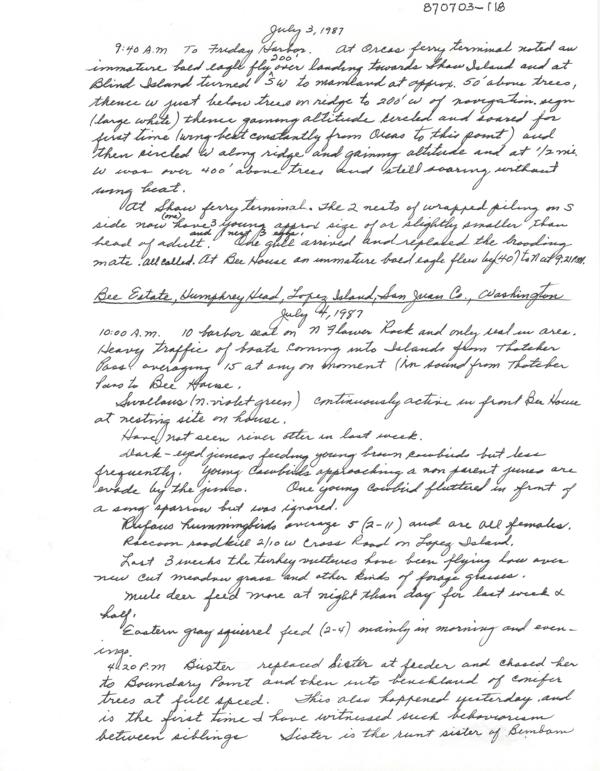 870703-118
July 3, 1987
9:40 A.M To Friday Harbor. At Orcas ferry terminal noted an
immature bald eagle fly 200' over landing towards Shaw Island and at
Blind Island turned SW to mainland at approx. 50' above trees,
thence W just below trees on ridge to 200' W of navigation sign
(large white) thence gaining altitude circled and soared for
first time (wing beat constantly from Orcas to this point) and
then circled W along ridge and gaining altitude and at 1/2 mile
W was over 400' above trees and still soaring without
wing beat.
At Shaw ferry terminal. The 2 nests of wrapped piling on S
side now have (one) 3 young approx size of or slightly smaller than
head of adult. and next 3 eggs. One gull arrived and replaced the brooding
mate. All called. At Bee House an immature bald eagle flew by (40') to N at 9:21 P.M.
Bee Estate, Humphrey Head, Lopez Island, San Juan Co., Washington
July 4, 1987
10:00 A.M. 10 harbor seal on N Flower Rock and only seal in area.
Heavy traffic of boats coming into Islands from Thatcher
Pass averaging 15 at any on moment (in sound from Thatcher
Pass to Bee House.
Swallows (n. violet green) continuously active in front Bee House
at nesting site on house.
Have not seen river otter in last week.
Dark-eyed juncos feeding young brown cowbirds but less
frequently. Young Cowbirds approaching a non parent junco are
evade by the junco. One young cowbird fluttered in front of
a song sparrow but was ignored.
Rufous hummingbirds average 5 (2-11) and are all females.
Raccoon roadkill 2/10 W Cross Road on Lopez Island.
Last 3 weeks the turkey vultures have been flying low over
new cut meadow grass and other kinds of forage grasses.
Mule deer feed more at night than day for last week &
half.
Eastern gray squirrel feed (2-4) mainly in morning and even-
ings.
4:20 P.M Buster replaced Sister at feeder and chased her
to Boundary Point and then into benchland of conifer
trees at full speed. This also happened yesterday and
is the first time I have witnessed such behaviorism
between siblings Sister is the runt sister of Bimbam